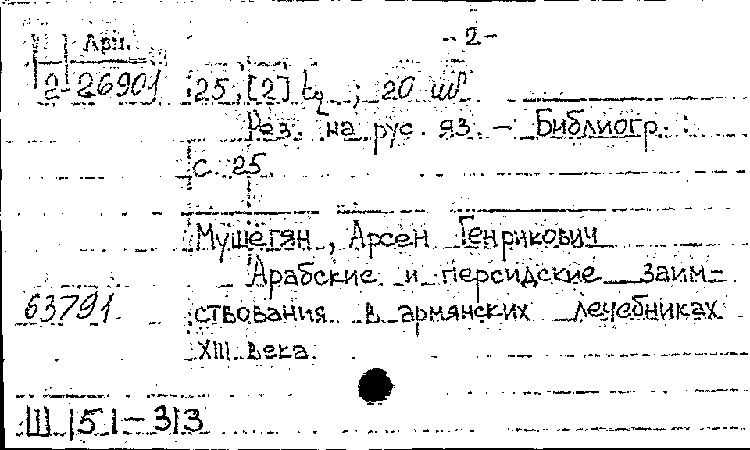 - 2 -
Арм.
2-26901
25, [2] էջ ; 20 սմ
Рез. на рус. яз. - Библиогр. :
с. 25.
Мушегян, Арсен Генрикович
Арабские и персидские заим-
63791
ствования в армянских лечебниках
XIII века.
Ш 151-313